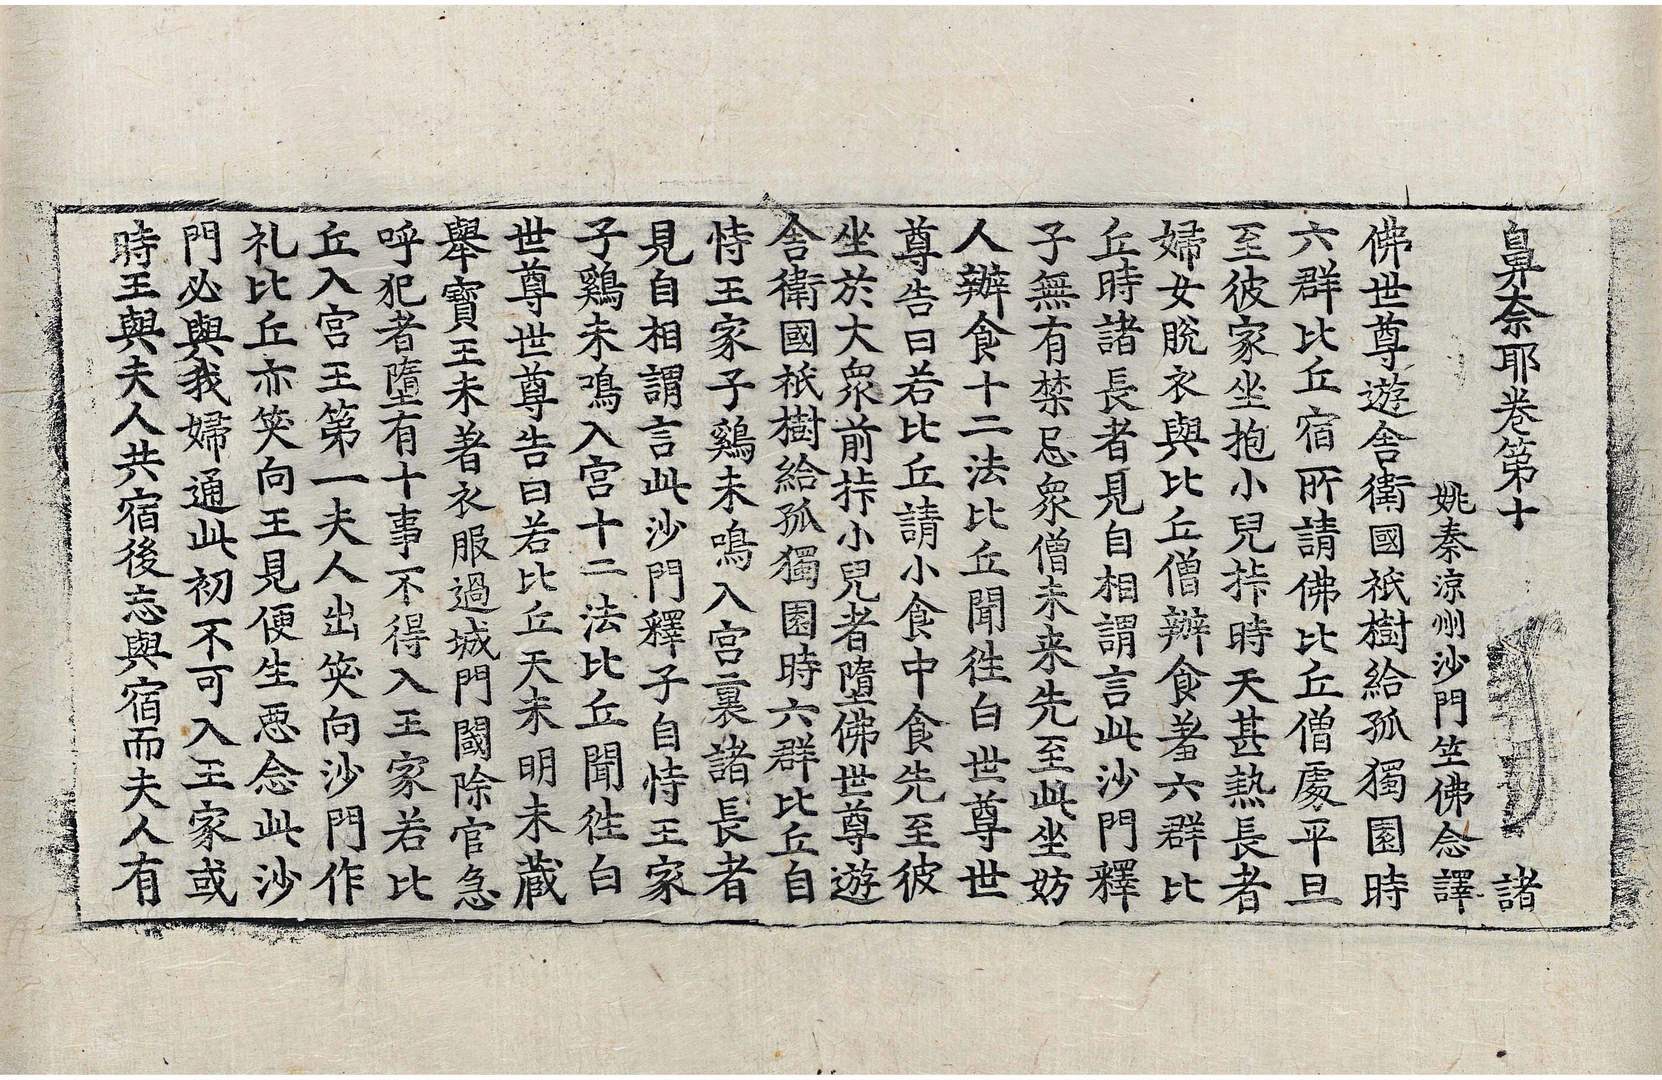 鼻奈耶卷第十 諸
姚秦涼州沙門竺佛念譯
佛世尊遊舍衛國祇樹給孤獨園時
六群比丘宿所請佛比丘僧處平旦
至彼家坐抱小兒挊時天甚熱長者
婦女脫衣與比丘僧辦食著六群比
丘時諸長者見自相謂言此沙門釋
子無有禁忌衆僧未来先至此坐妨
人辦食十二法比丘聞徃白世尊世
尊告曰若比丘請小食中食先至彼
坐於大衆前挊小兒者墮佛世尊遊
舍衛國祇樹給孤獨園時六群比丘自
恃王家子鷄未鳴入宮裏諸長者
見自相謂言此沙門釋子自恃王家
子鷄未鳴入宮十二法比丘聞徃白
世尊世尊告曰若比丘天未明未蔵
舉寶王未著衣服過城門閫除官急
呼犯者墮有十事不得入王家若比
丘入宮王第一夫人出笑向沙門作
礼比丘亦笑向王見便生惡念此沙
門必與我婦通此初不可入王家或
時王與夫人共宿後忘與宿而夫人有